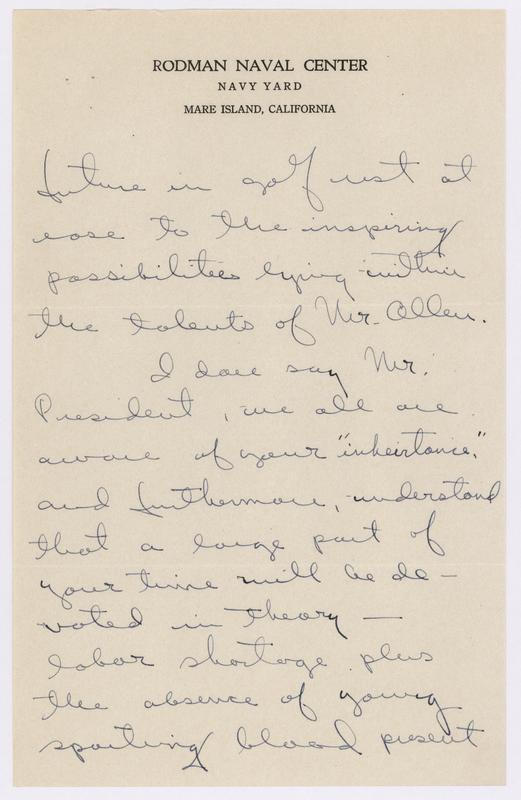 RODMAN NAVAL CENTER
NAVY YARD
MARE ISLAND, CALIFORNIA
future in golf rest at
ease to the inspiring
possibilities lying within
the talents of Mr. Allen.
I dare say Mr.
President, we all are
aware of your "inheirtance,"
and furthermore, understand
that a large part of
your time will be de-
voted in theory —
labor shortage plus
the absence of young
sporting blood present